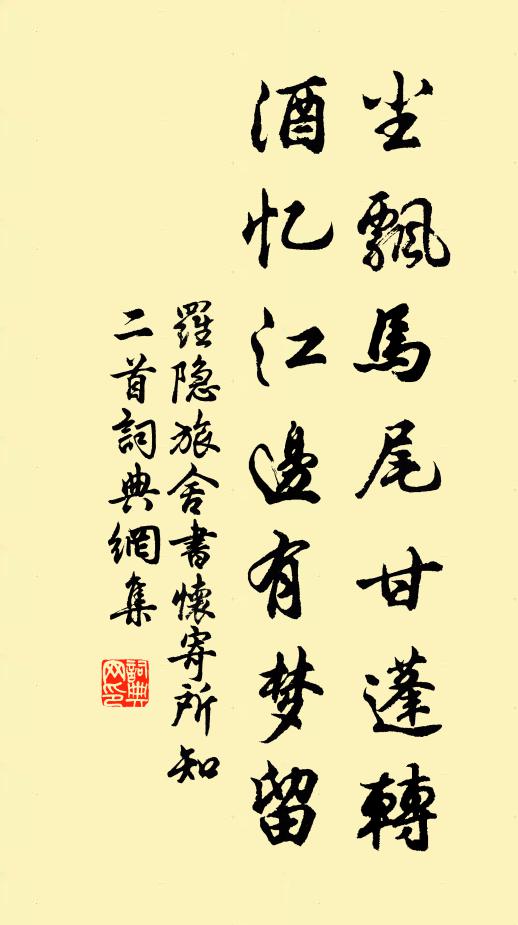 尘飄馬尾甘蓬轉
酒忆江邊有梦留
羅隐旅舍書懷寄所知
二首詞典網集
詞典网印